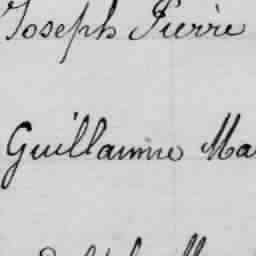 Joseph Pierre
Guillaume Ma